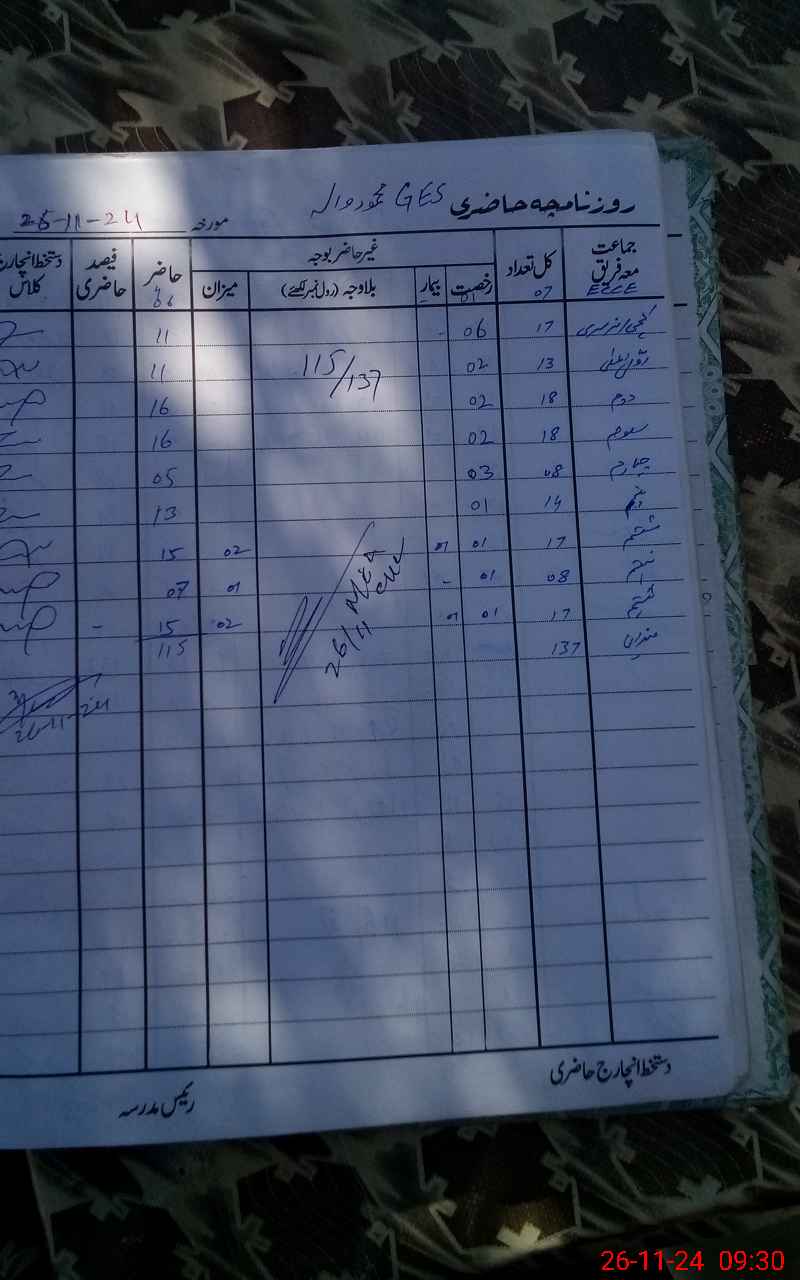 روزنامچہ حاضری GES محمود والہ مورخہ 26-11-24
جماعت معہ فریق کل تعداد غیر حاضر بوجہ حاضر فیصد حاضری دستخط انچارج کلاس
رخصت بیمار بلاوجہ (رول نمبر لکھیئے) میزان
ECCE 07 01 06
کچی/نرسری 17 06 - 11
13 02 11
دوم 18 02 16
سوم 18 02 16
چہارم 08 03 05
پنجم 14 01 13
ششم 17 01 01 02 15
08 01 - 01 07
17 01 01 02 15 -
میزان 137 115
115/137
26/11
MEA
26-11-24
دستخط انچارج حاضری
رئیس مدرسہ
26-11-24 09:30